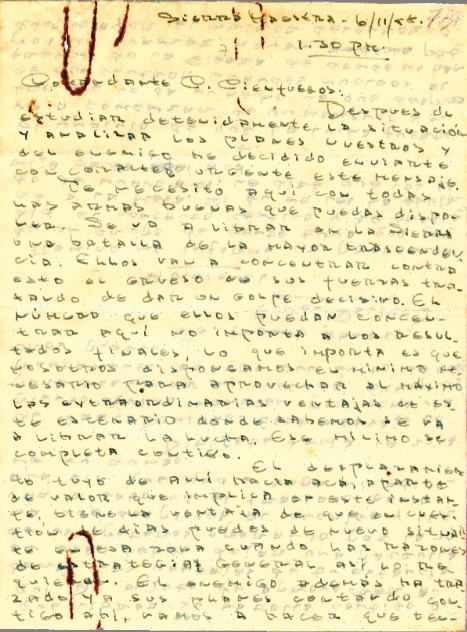 Sierra Maestra - 6/11/58.
1.30 PM.
Comandante C. Cienfuegos:
Despues de
estudiar detenidamente la situación
y analizar los planes nuestros y
del enemigo he decidido enviarte
con carácter urgente este mensaje.
Te necesito aquí con todas
las armas buenas que puedas dispo-
ner. Se va a librar en la Sierra
una batalla de la mayor trascenden-
cia. Ellos van a concentrar contra
esto el grueso de sus fuerzas tra-
tando de dar un golpe decisivo. El
número que ellos puedan concen-
trar aquí no importa a los resul-
tados finales, lo que importa es que
nosotros dispongamos el mínimo ne-
cesario para aprovechar al máximo
las extraordinarias ventajas de es-
te escenario donde sabemos se va
a librar la lucha. Ese mínimo se
completa contigo.
El desplazamien
to tuyo de allí hacia acá, aparte
de valor que implica en este instan-
te, tiene la ventaja de que en cues-
tion de días puedes de nuevo situar
te en esa zona cuando las razones
de estrategia general así lo re-
quieran. El enemigo además ha tra
zado ya sus planes contando con-
tigo ahí, vamos a hacer que ten-